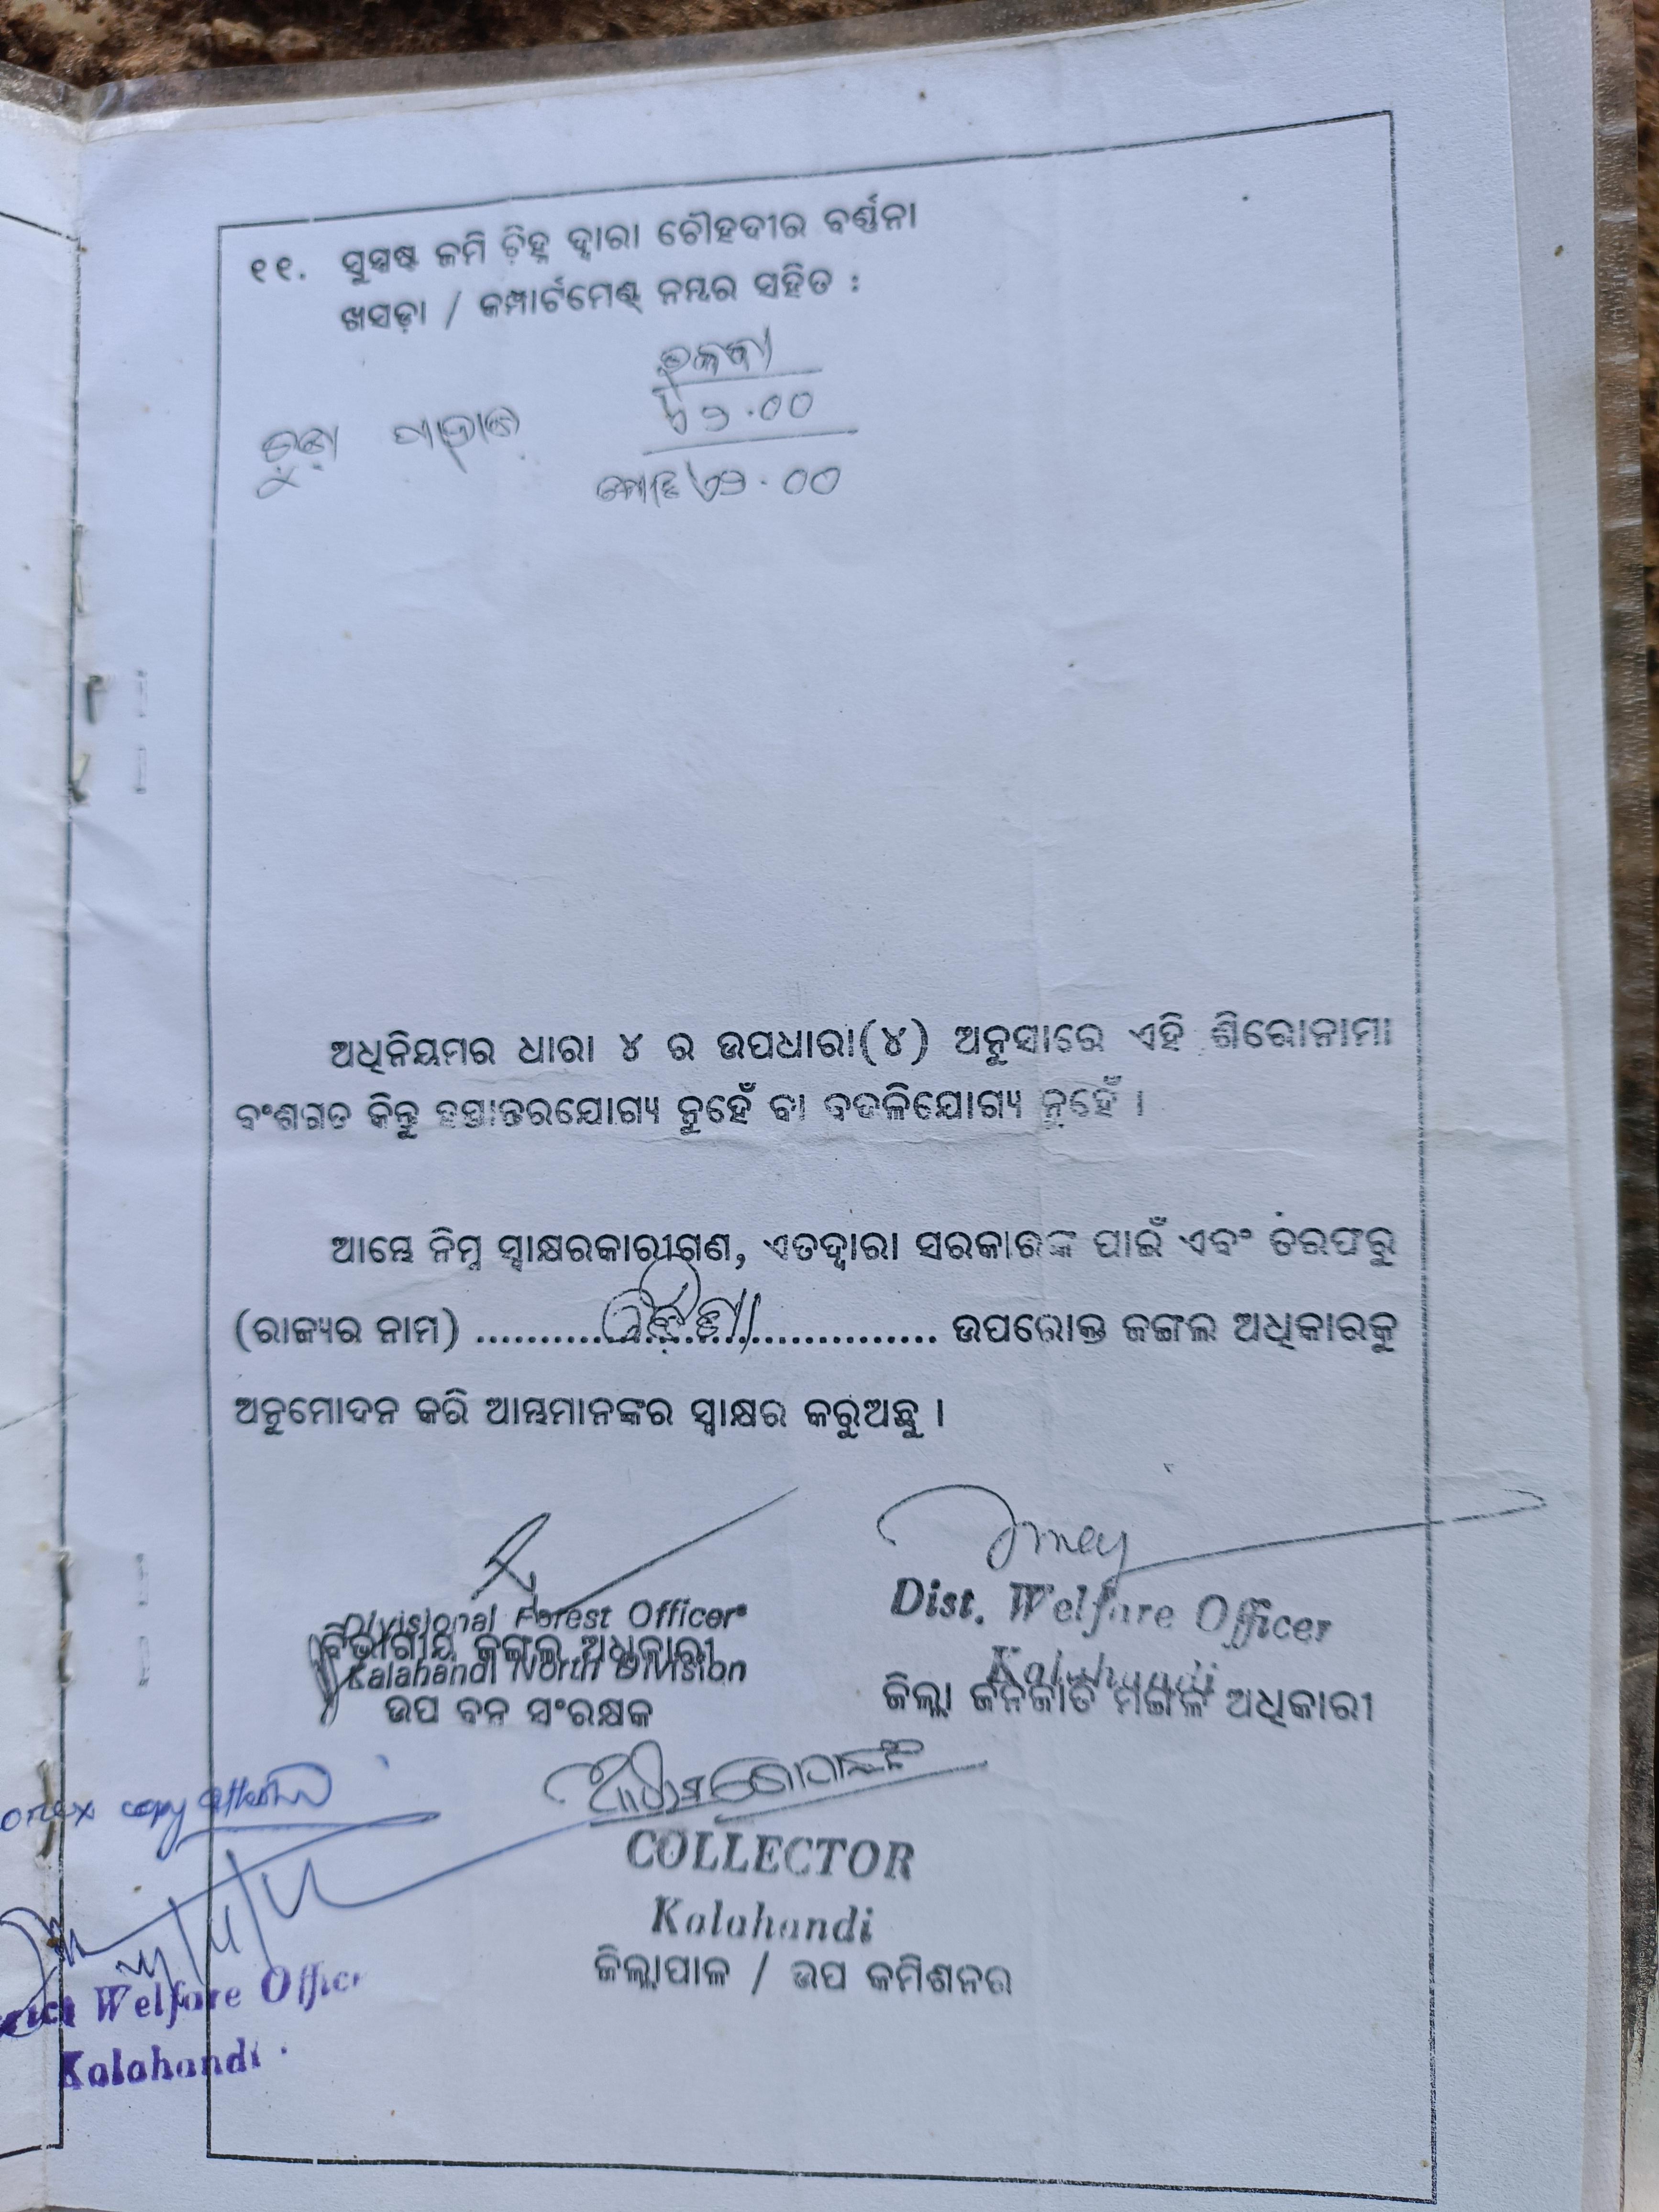 ୧୧. ସୁସ୍ପଷ୍ଟ ଜମି ଚିହ୍ନ ଦ୍ୱାରା ଚୌହଦୀର ବର୍ଣ୍ଣନା
ଖସଡ଼ା / କମ୍ପାର୍ଟମେଣ୍ଟ୍ ନମ୍ବର ସହିତ :
.୦୦
.୦୦
ଅଧିନିୟମର ଧାରା ୪ ର ଉପଧାରା(୪) ଅନୁସାରେ ଏହି ଶିରୋନାମା
ବଂଶଗତ କିନ୍ତୁ ହସ୍ତାନ୍ତରଯୋଗ୍ୟ ନୁହେଁ ବା ବଦଳିଯୋଗ୍ୟ ନୁହେଁ ।
ଆମ୍ଭେ ନିମ୍ନ ସ୍ୱାକ୍ଷରକାରୀଗଣ, ଏତଦ୍ୱାରା ସରକାରଙ୍କ ପାଇଁ ଏବଂ ତରଫରୁ
(ରାଜ୍ୟର ନାମ) ................................... ଉପରୋକ୍ତ ଜଙ୍ଗଲ ଅଧିକାରକୁ
ଅନୁମୋଦନ କରି ଆମ୍ଭମାନଙ୍କର ସ୍ୱାକ୍ଷର କରୁଅଛୁ ।
Divisional Forest Officer
ବିଭାଗୀୟ ଜଙ୍ଗଲ ଅଧିକାରୀ
Kalahandi North Division
ଉପ ବନ ସଂରକ୍ଷକ
Dist. Welfare Officer
Kalahandi
ଜିଲ୍ଲା ଜନଜାତି ମଙ୍ଗଳ ଅଧିକାରୀ
copy attested
COLLECTOR
Kalahandi
ଜିଲ୍ଲାପାଳ / ଉପ କମିଶନର
Welfare Officer
Kalahandi